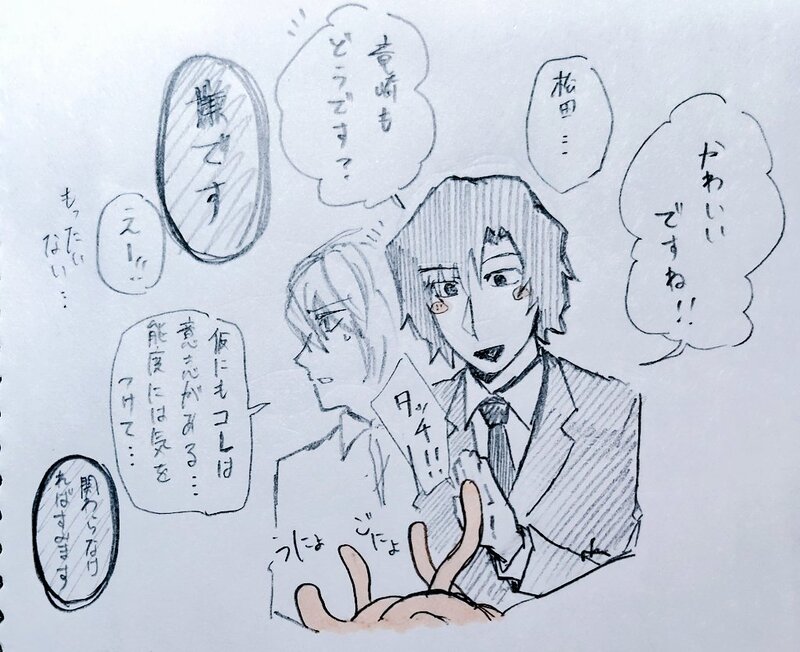 かわいい
ですね!!
松田…
竜崎も
どうです?
嫌です
えー!!
もったい
ない…
タッチ!!
仮にもコレは
意志がある…
態度には気を
つけて…
関わらなけ
ればすみます
うにょ
ごにょ